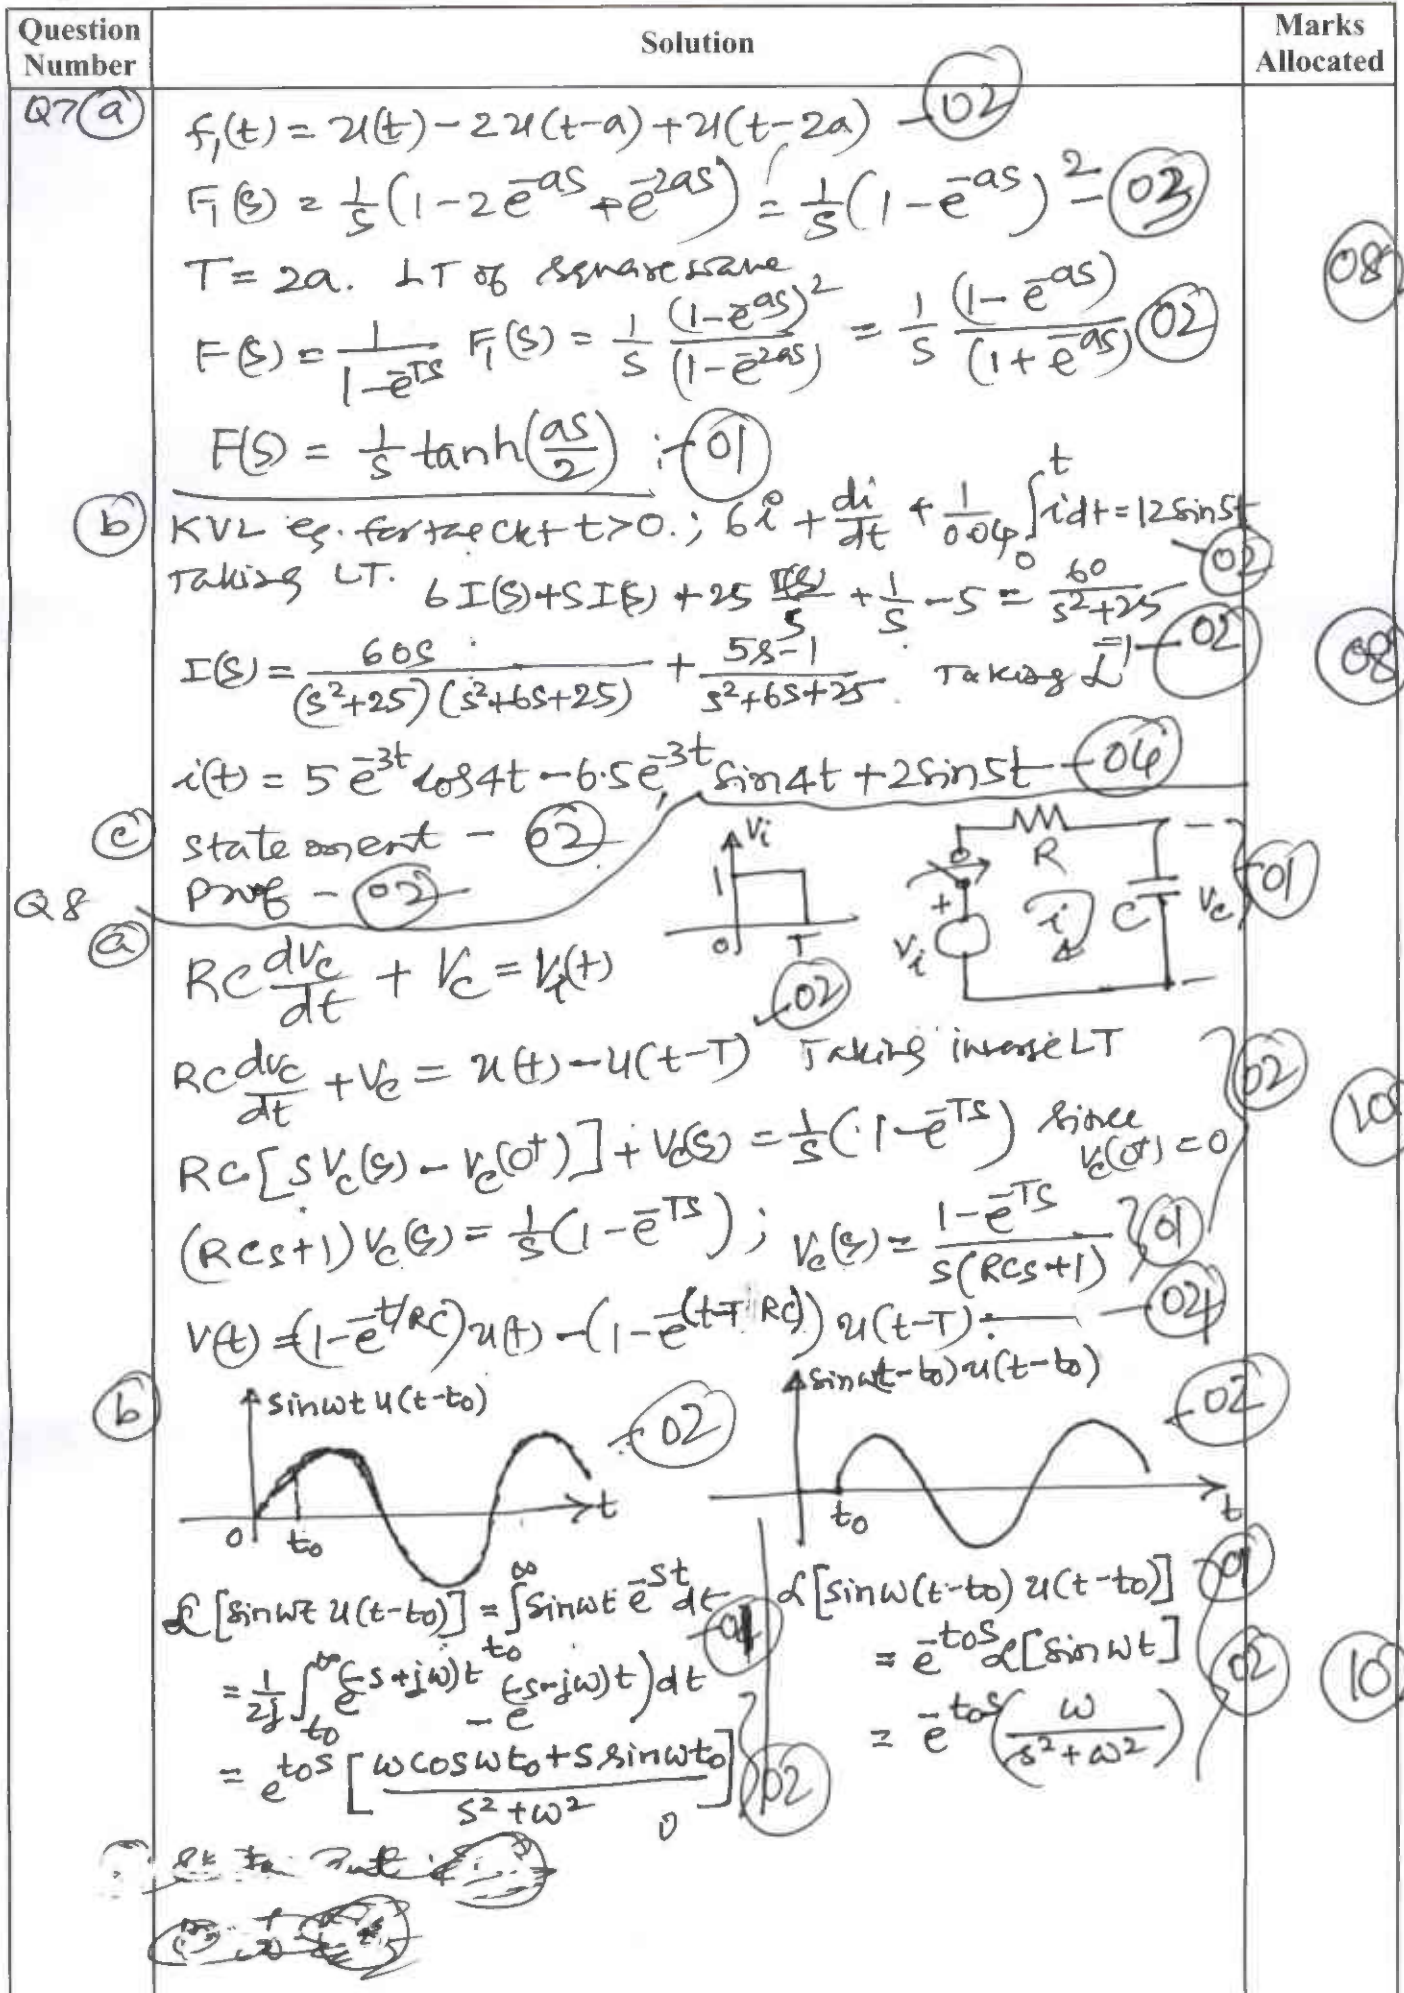 Question Number | Solution | Marks Allocated
Q7 (a) f₁(t) = u(t) - 2u(t-a) + u(t-2a) - (02)
F₁(s) = 1/s (1 - 2e^-as + e^-2as) = 1/s (1 - e^-as)² - (03)
T = 2a. LT of square wave (08)
F(s) = 1/(1 - e^-Ts) F₁(s) = 1/s (1 - e^-as)²/(1 - e^-2as) = 1/s (1 - e^-as)/(1 + e^-as) (02)
F(s) = 1/s tanh(as/2) ; - (01)
(b) KVL eq. for the ckt t>0. ; 6i + di/dt + 1/0.04 ∫₀^t i dt = 12 sin5t
Taking LT. 6I(s) + sI(s) + 25 I(s)/s + 1/s - 5 = 60/(s²+25) - (02)
I(s) = 60s/((s²+25)(s²+6s+25)) + (5s-1)/(s²+6s+25) Taking L^-1 - (02) (08)
i(t) = 5e^-3t cos4t - 6.5e^-3t sin4t + 2sin5t - (04)
(c) statement - (02)
Proof - (02)
Vi
1
0 T
R
+
Vi
i
C
Vc
(01)
Q8
(a) RC dvc/dt + Vc = Vi(t) - (02)
RC dvc/dt + Vc = u(t) - u(t-T) Taking inverse LT
RC[sVc(s) - Vc(0⁺)] + Vc(s) = 1/s (1 - e^-Ts) since Vc(0⁺) = 0 (02) (10)
(RCs+1)Vc(s) = 1/s (1 - e^-Ts) ; Vc(s) = (1 - e^-Ts)/(s(RCs+1)) (01)
V(t) = (1 - e^-t/RC)u(t) - (1 - e^-(t-T/RC)) u(t-T) : - (04)
(b) sinωt u(t-t₀) - (02)
0 t₀ t
sinω(t-t₀) u(t-t₀) - (02)
t₀ t
L[sinωt u(t-t₀)] = ∫_t₀^∞ sinωt e^-st dt - (01)
= 1/2j ∫_t₀^∞ (e^(-s+jω)t - e^(-s-jω)t) dt
= e^t₀s [(ω cosωt₀ + s sinωt₀)/(s²+ω²)] (02)
L[sinω(t-t₀) u(t-t₀)] (01)
= e^-t₀s L[sinωt] (02) (10)
= e^-t₀s (ω/(s²+ω²))